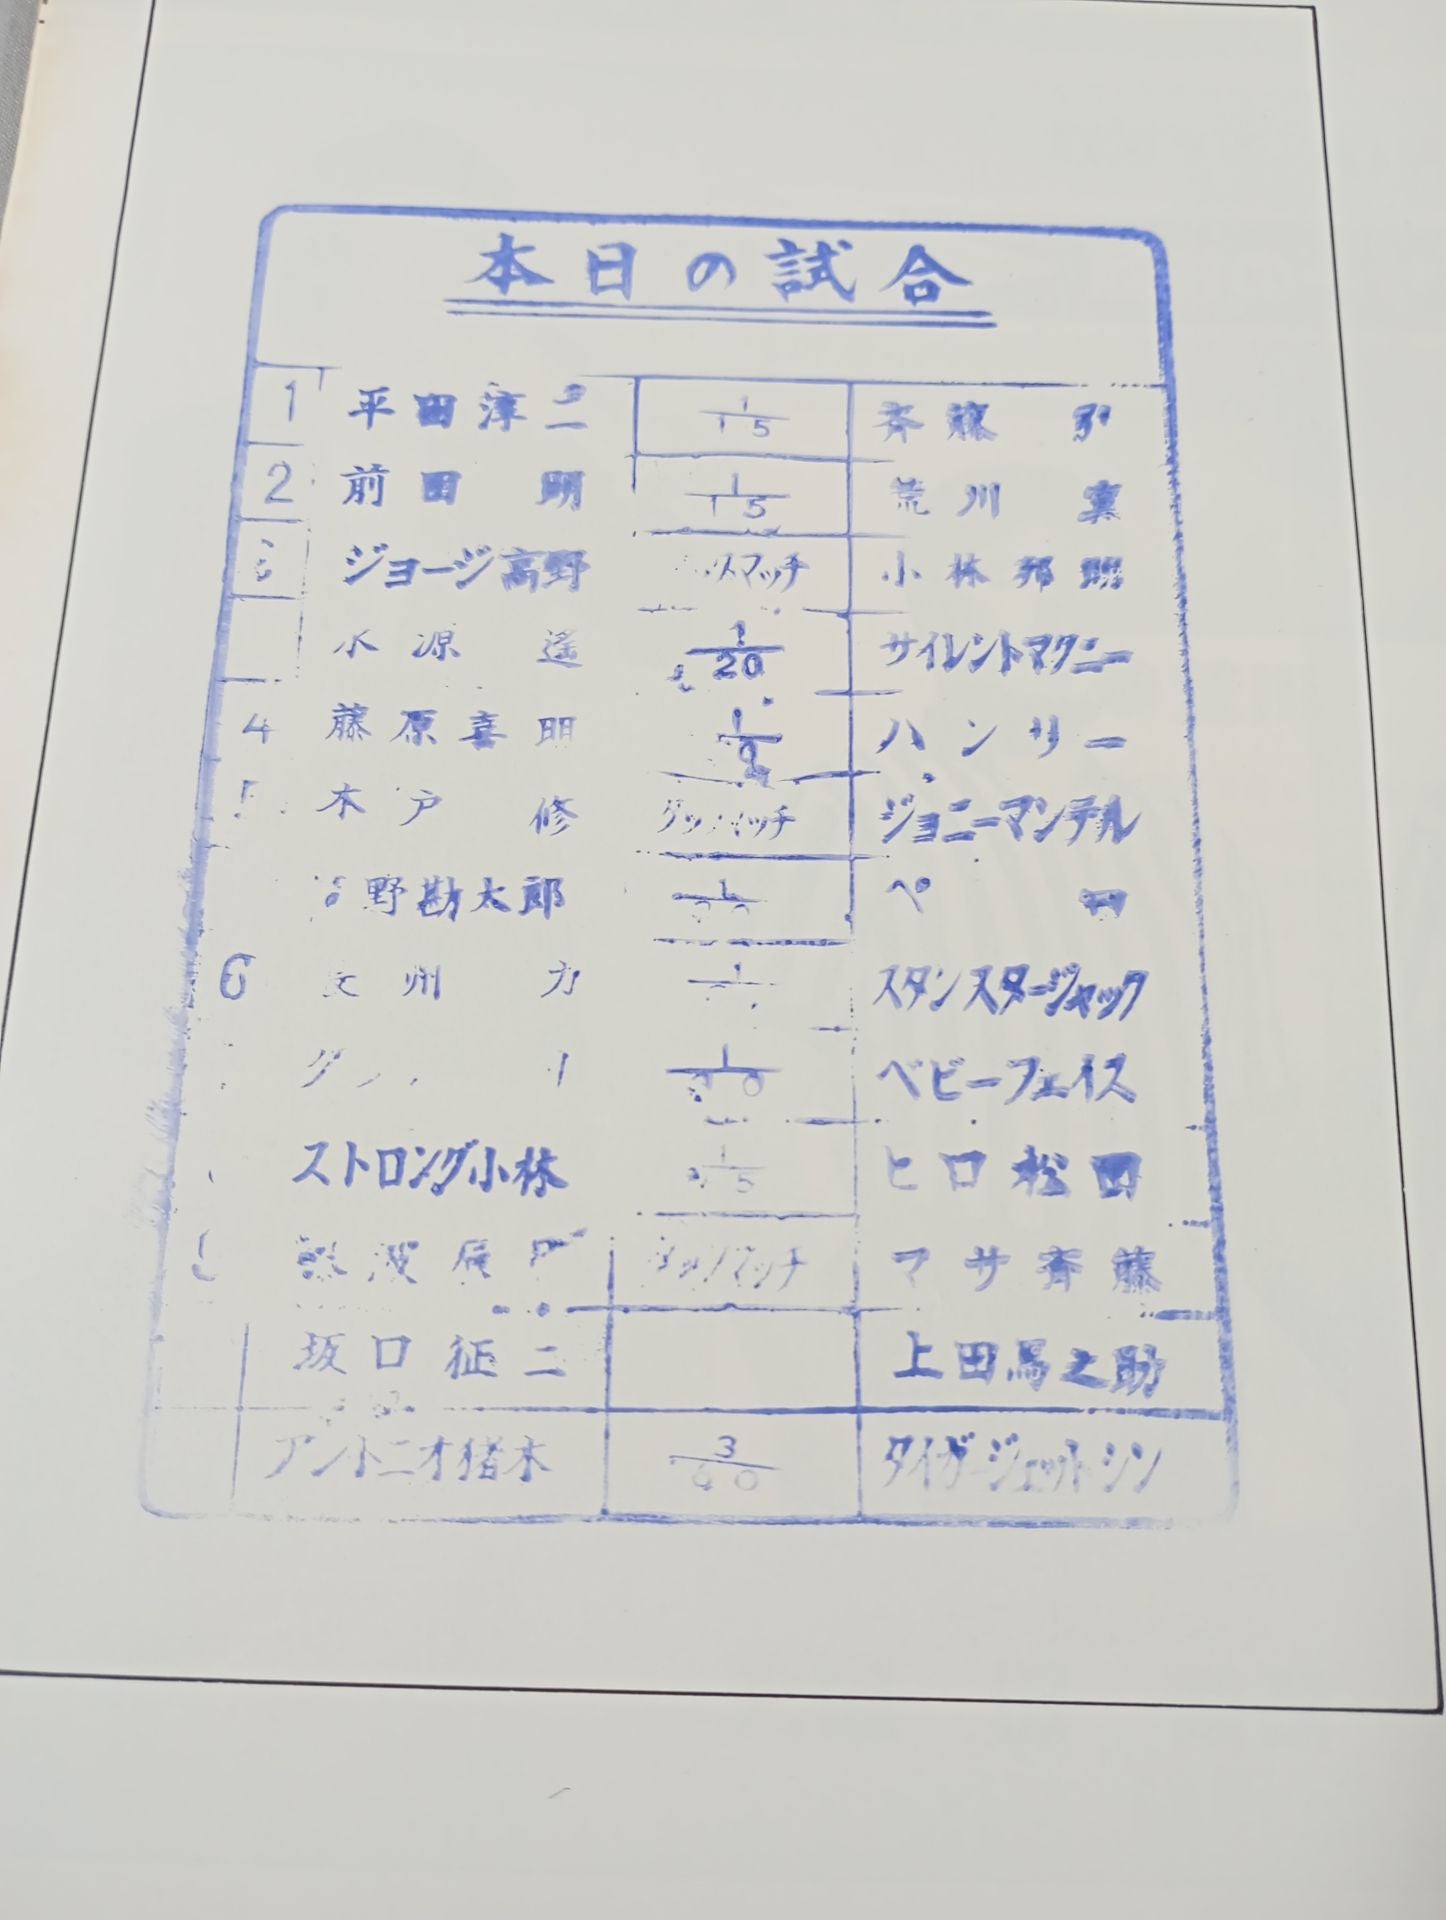 本日の試合
1 平田淳二 1/15 斉藤 弘
2 前田 明 1/15 荒川 真
ジョージ高野 マッチ 小林邦昭
水源 遥 1/20 サイレントマクニー
4 藤原喜明 1 ハンリー
木戸 修 マッチ ジョニーマンテル
野勘太郎 1 ペロ
6 州 力 1 スタンスタージャック
グ 1 ベビーフェイス
ストロング小林 1 5 ヒロ松田
波 マッチ マサ斉藤
坂口征二 上田馬之助
アントニオ猪木 3/60 タイガージェットシン